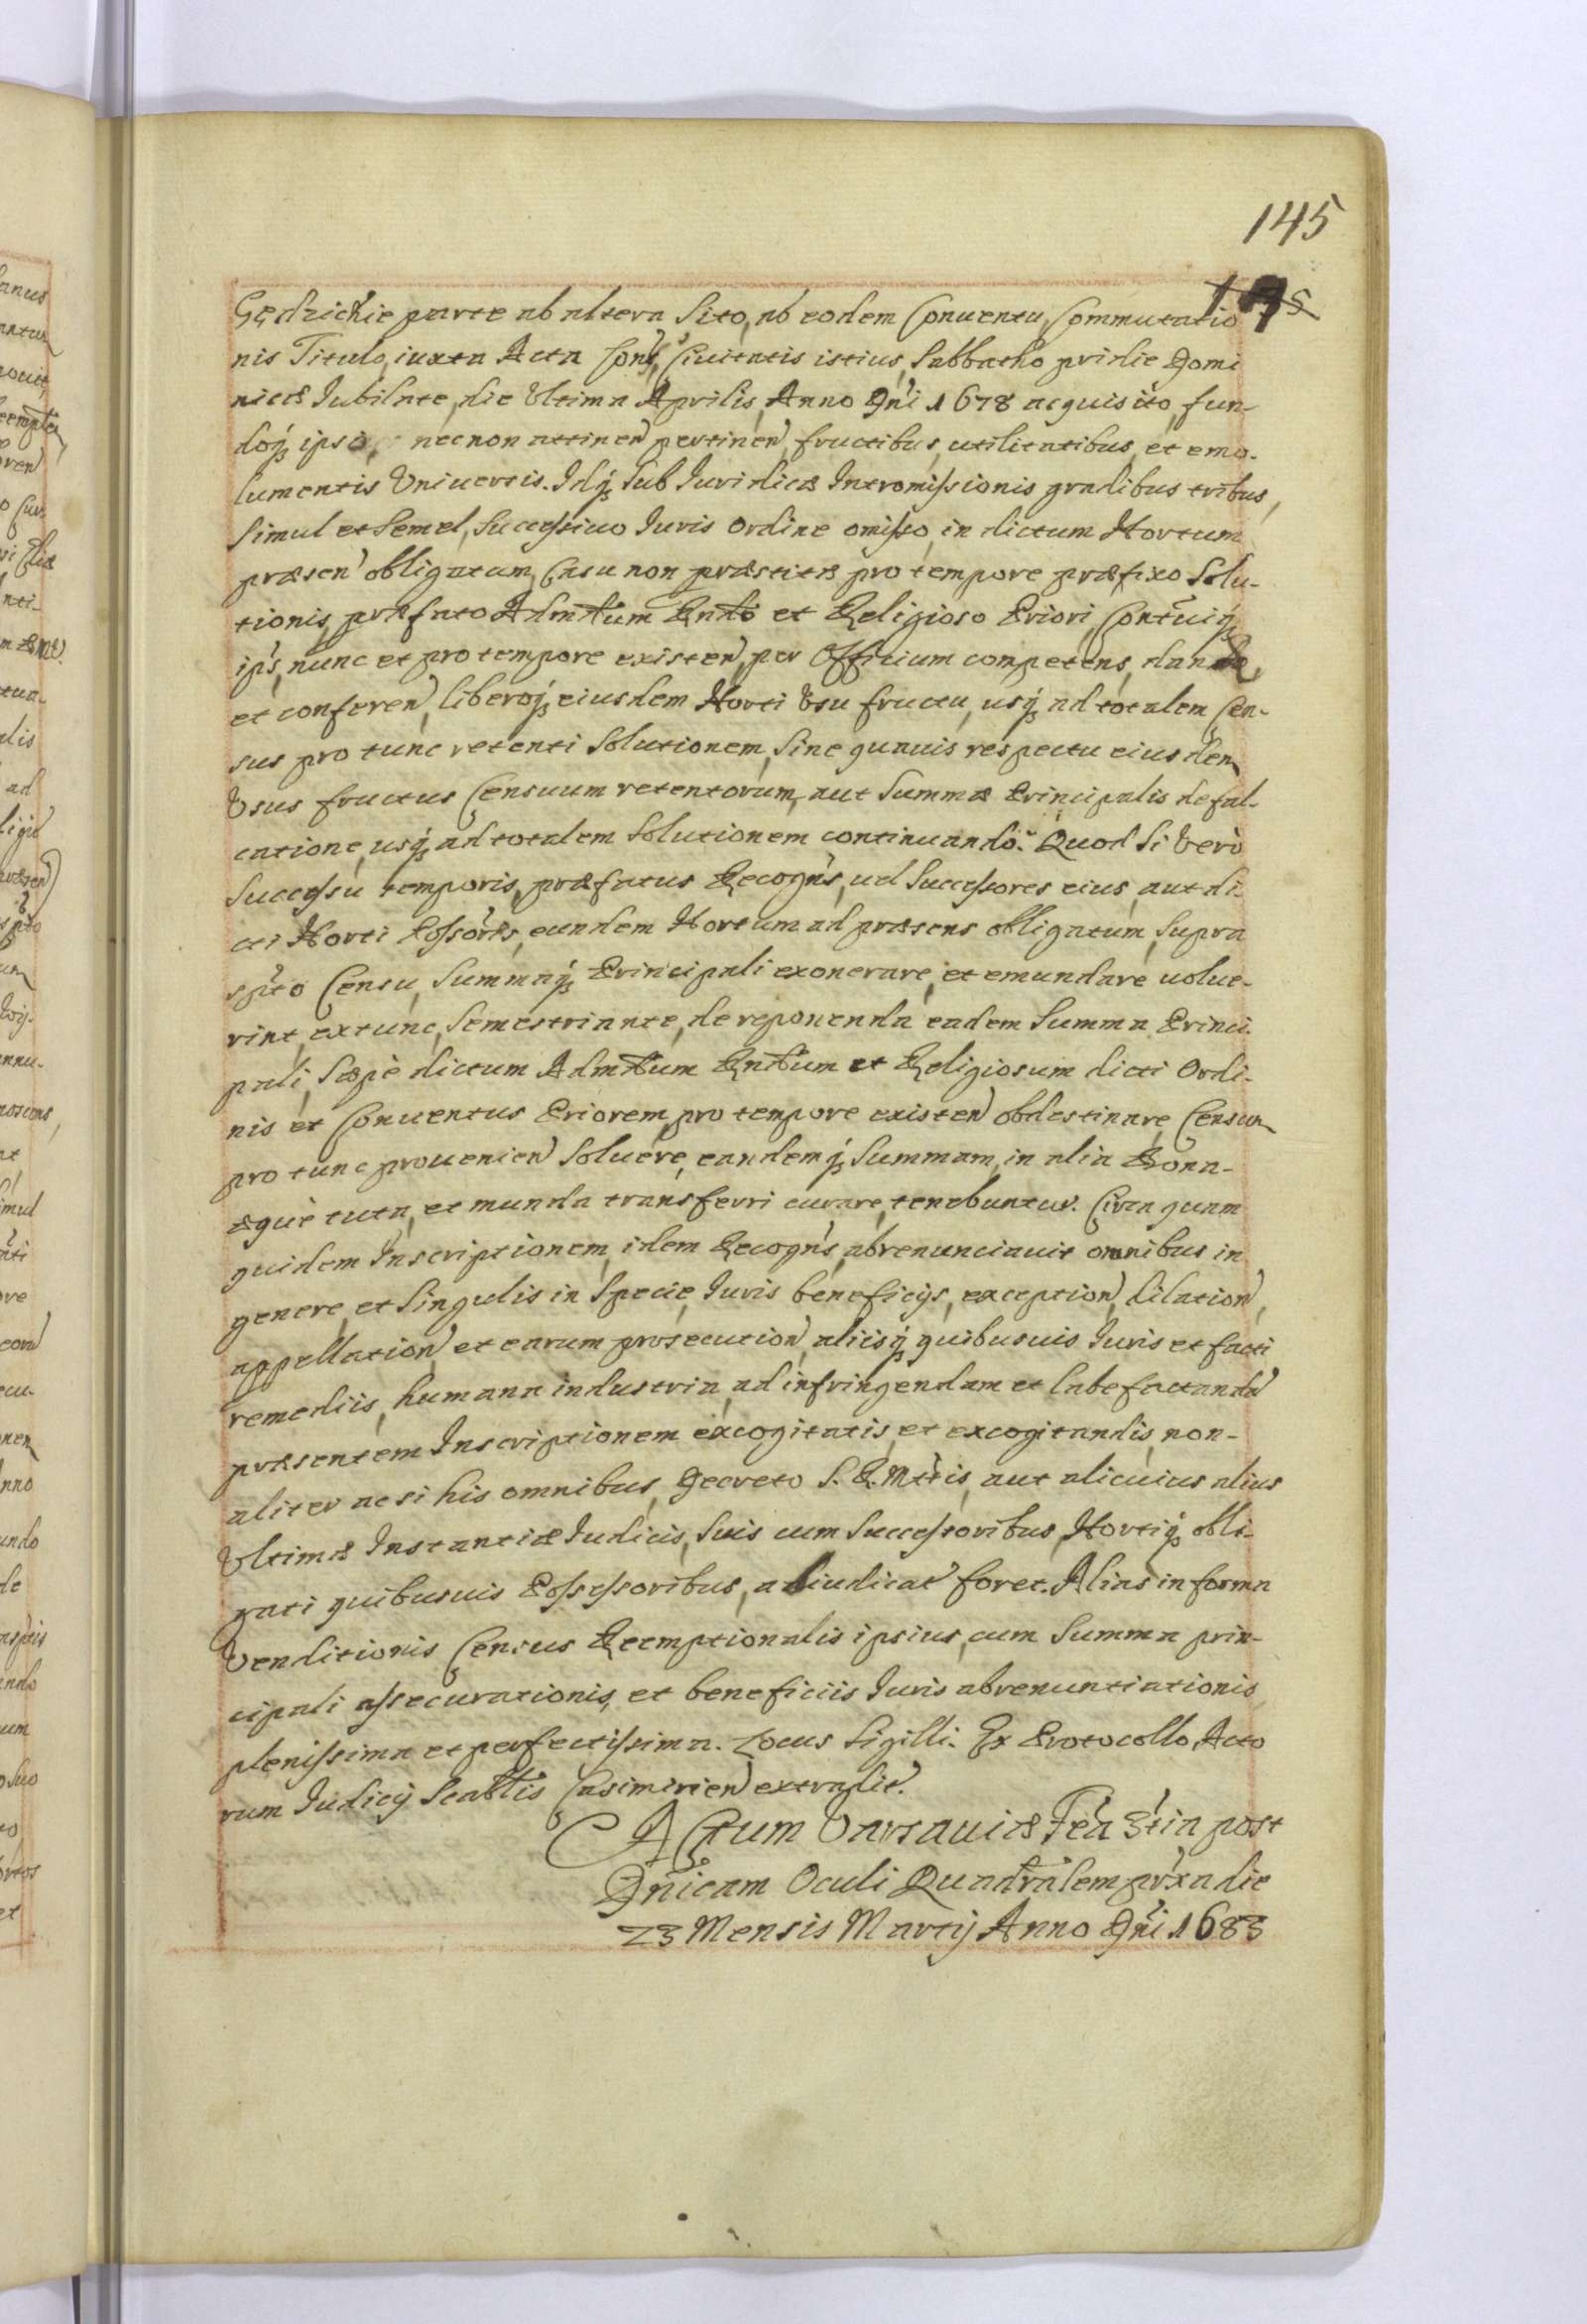 145
Gędzichie parte ab altera Sito, ab eodem Conuentu, Commutatio
nis Titulo, iuxta Acta Cons, Ciuitatis istius, Sabbatho pridie Domi
nicæ Iubilate, die Vltima Aprilis, Anno Dni 1678 acquisito, fun-
doq; ipso, necnon attinen, pertinen, fructibus, utilitatibus, et emo-
lumentis Vniuersis. Idq; Sub Iuridicæ Intromissionis gradibus tribus,
Simul et Semel, Successiuo Iuris Ordine omisso, in dictum Hortum
præsen obligatum, Casu non præstitæ pro tempore præfixo Solu-
tionis, præfato Admtum Rndo et Religioso Priori, Contuiq;
ips, nunc et pro tempore existen, per Officium competens, dan
et conferen, liberoq; eiusdem Horti Vsu fructu, usq; ad totalem Cen-
sus pro tunc retenti Solutionem, Sine quauis respectu eiusdem
Vsus fructus Censuum retentorum, aut Summæ Principalis defal-
catione, usq; ad totalem Solutionem continuando. Quod Si Verò
Successu temporis, præfatus Recogns, uel Successores eius, aut di-
cti Horti Possores, eundem Hortum ad præsens obligatum, Supra
spto Censu, Summaq; Principali exonerare, et emundare uolue-
rint, extunc, Semestri ante, de reponenda eadem Summa Princi-
pali, Sæpè dictum Admtum Rndum et Religiosum dicti Ordi-
nis et Conuentus Priorem, pro tempore existen obdestinare, Censum
pro tunc prouenien Soluere, eandemq; Summam, in alia Bona-
æquè tuta, et munda transferri curare, tenebuntur. Circa quam
quidem Inscriptionem, idem Recogns, abrenunciauit omnibus in
genere, et Singulis in Specie, Iuris beneficijs, exception, dilation,
appellation, et earum prosecution, aliisq; quibusuis Iuris et facti
remediis, humana industria, ad infringendam et labefactandã
præsentem Inscriptionem excogitatis, et excogitandis, non-
aliter ac si his omnibus, Decreto S. R. Mttis, aut alicuius alius
Vltimæ Instantiæ Iudicis, Suis cum Successoribus, Hortiq; obli-
gati quibusuis Possessoribus, adiudicat foret. Alias in forma
Venditionis Census Reemptionalis ipsius, cum Summa prin-
cipali assecurationis, et beneficiis Iuris abrenuntiationis
plenissima et perfectissima. Locus Sigilli. Ex Protocollo, Acto
rum Iudicij Scabtis Casimirien extradit.
Actum Varsauiæ Feria 3tia post
Dnicam Oculi Quadralem prxa die
23 Mensis Martij Anno Dni 1683